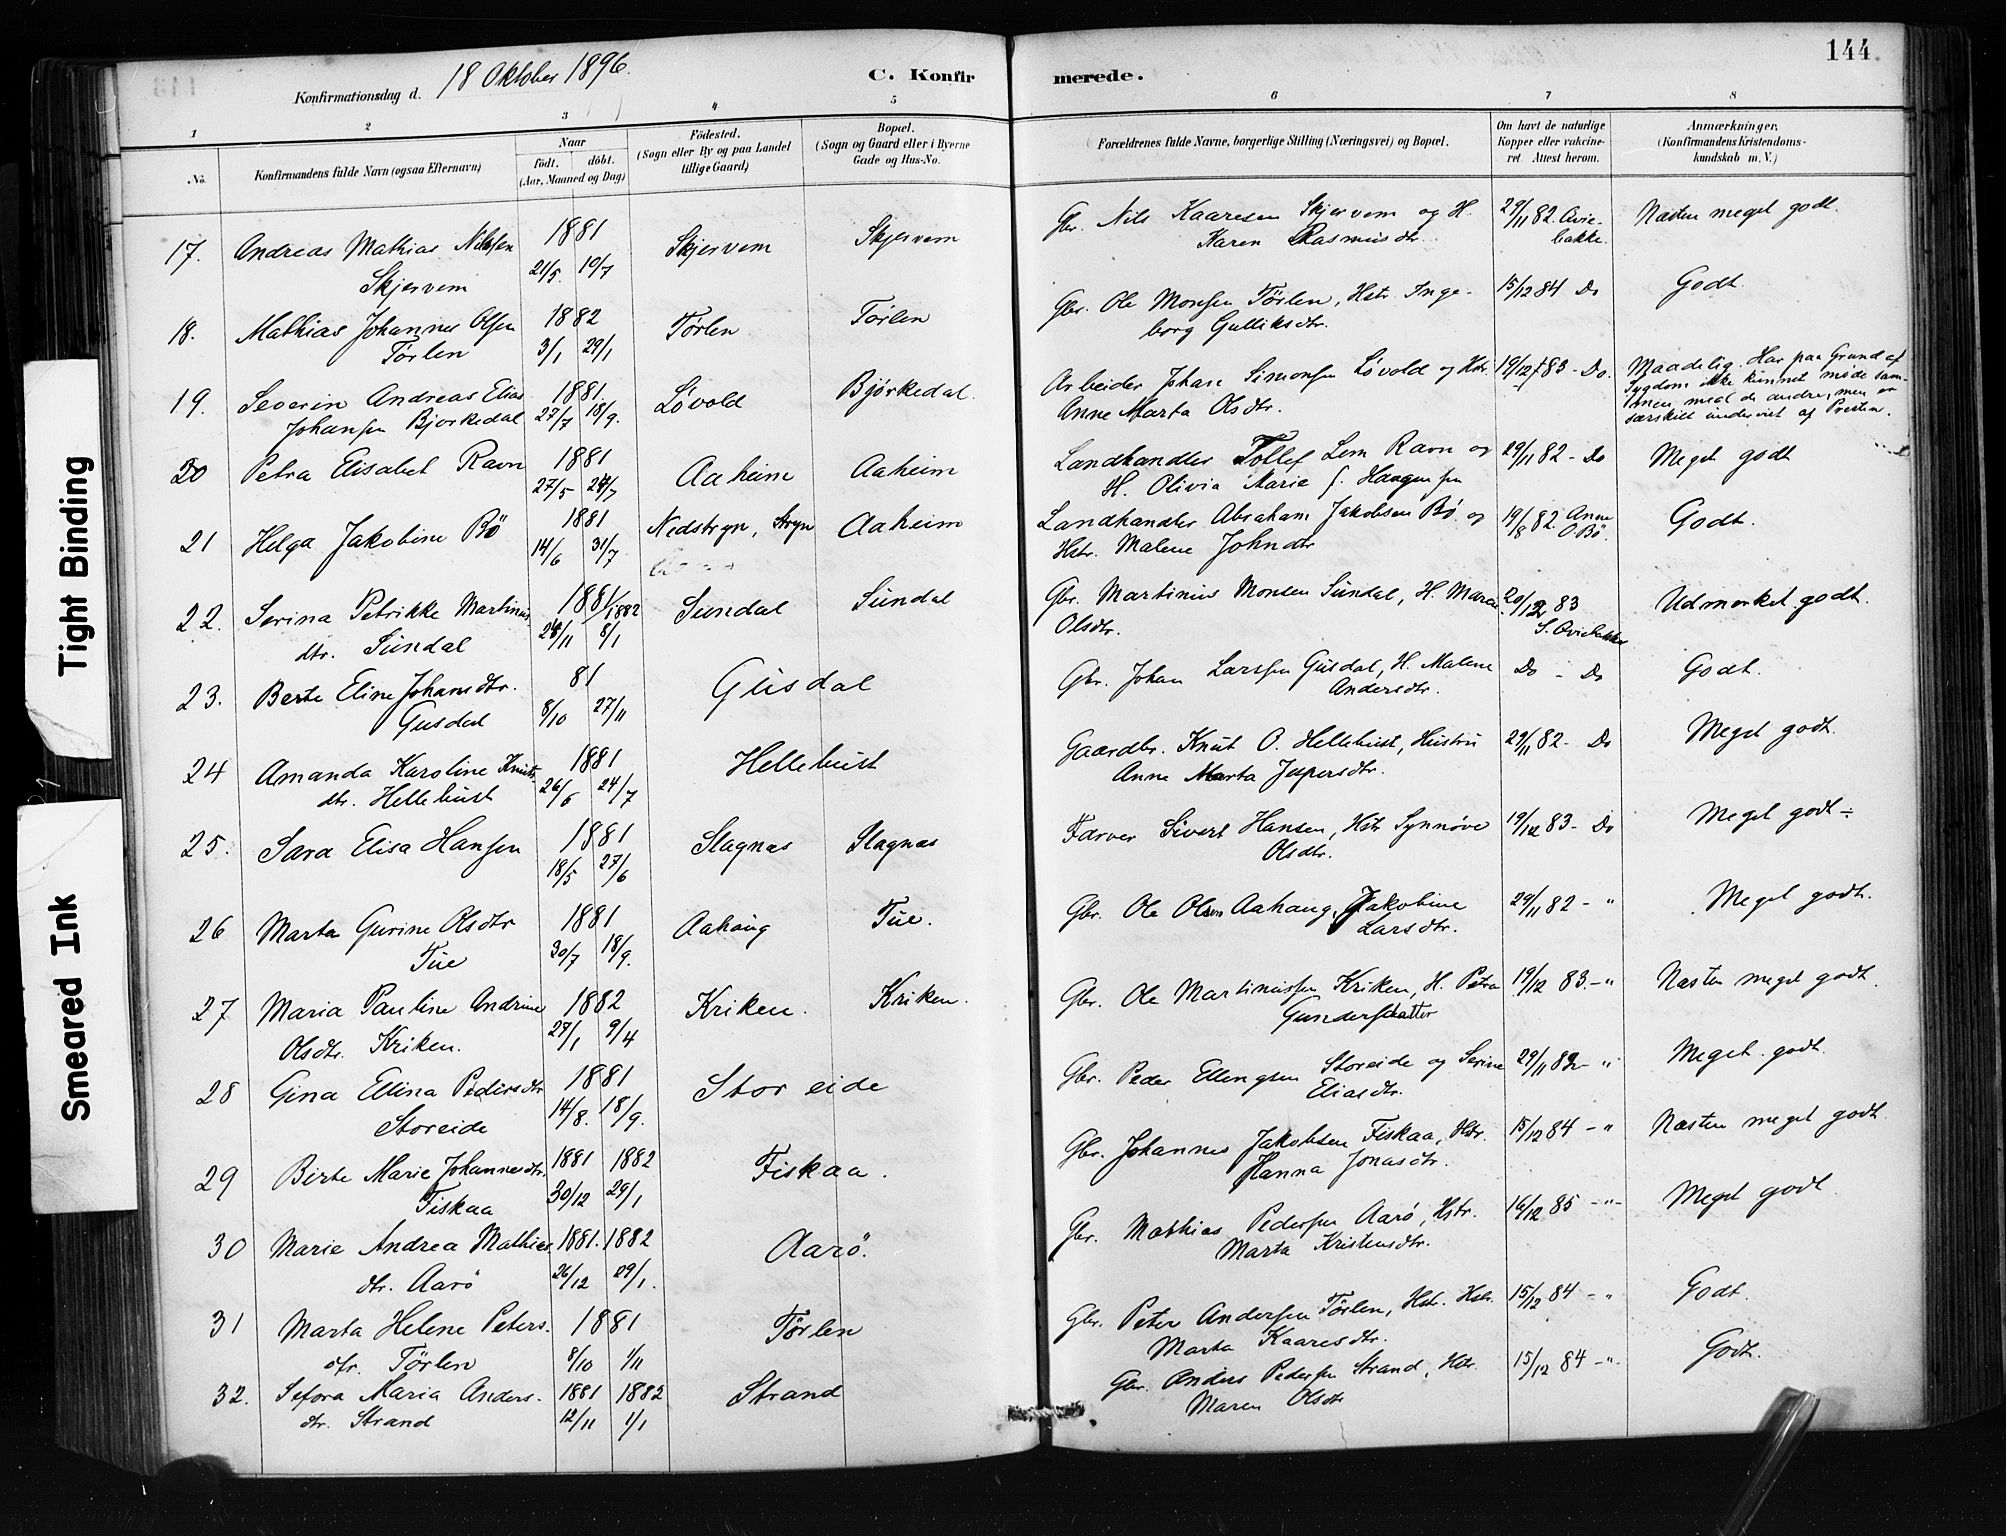 18 Oktober 1896.
Konfirmationsdag d.
C. Konfir
merede.
144
1
2
3
4
5
6
7
8
No.
Konfirmandens fulde Navn (ogsaa Efternavn)
Naar
födt.
döbt.
(Aar, Maaned og Dag)
Födested.
(Sogn eller By og paa Landet
tillige Gaard)
Bopæl.
(Sogn og Gaard eller i Byerne
Gade og Hus-No.
Forældrenes fulde Navne, borgerlige Stilling (Næringsvei) og Bopæl.
Om havt de naturlige
Kopper eller vakcine-
ret. Attest herom.
Anmærkninger.
(Konfirmandens Kristendoms-
kundskab m. V.)
17. Andreas Mathias Nilsen 1881 Skjervem Skjervem Gbr. Nils Kaaresen Skjervem og H. 29/11 82. Ovie- Næsten meget godt.
Skjervem 21/5. 19/7 Karen Rasmusdtr. bakke.
18. Mathias Johannes Olsen 1882 Tørlen Tørlen Gbr. Ole Monsen Tørlen, Hstr. Inge- 15/12 84 Do Godt.
Tørlen 3/1 29/1 borg Gulliksdtr.
19. Severin Andreas Elias 1881 Løvold Bjørkedal. Arbeider Johan Simonsen Løvold og Hstr. 19/12 83 - Do. Maadelig. Har paa Grund af
Johansen Bjørkedal 27/7 18/9. Anne Marta Olsdtr. Sygdom ikke kunnet møde sam-
men med de andre, men er
særskilt undervist af Presten.
20 Petra Elisabet Ravn 1881 Aaheim Aaheim Landhandler Tollef Lem Ravn og 29/11 82 - Do Meget godt
27/5 24/7 H. Olivia Marie f. Haagensen
21 Helga Jakobine Bö 1881 Nedstryn, Stryn Aaheim Landhandler Abraham Jakobsen Bö og 19/8 82. Anne Godt.
14/6 31/7 Hstr. Malene Johndtr O. Bö.
22. Serina Petrikke Martinus- 1881/1882 Sundal Sundal Gbr. Martinus Monsen Sundal, H. Maren 20/12 83 Udmerket godt.
dtr. Sundal 24/11 8/1 Olsdtr. S. Oviebakke
23. Berte Eline Johansdtr. 81 Gusdal Gbr. Johan Larssen Gusdal, H. Malene Do - Do Godt.
Gusdal 8/10 27/11 Andersdtr.
24 Amanda Karoline Knuts- 1881 Hellebust Gaardbr. Knut O. Hellebust, Hustru 29/11 82 - Do Meget godt.
dtr. Hellebust 26/6 24/7 Anne Marta Jespersdtr.
25. Sara Elisa Hansen 1881 Slagnæs Slagnæs Farver Sivert Hansen, Hstr Synnøve 19/12 83 - Do Meget godt ÷
18/5 27/6 Olsdtr.
26 Marta Gurine Olsdtr 1881 Aahaug Tue. Gbr. Ole Olsen Aahaug, Jakobine 29/11 82 - " Meget godt.
Tue 30/7 18/9. Larsdtr.
27 Maria Pauline Andrine 1882 Kriken. Kriken. Gbr. Ole Martinussen Kriken, H. Petra 19/12 83 - " Næsten meget godt.
Olsdtr. Kriken. 27/1 9/4 Gundersdatter
28 Gina Ellina Pedersdtr 1881 Storeide Gbr. Peder Ellengsen Storeide og Serine 29/11 82 - " Meget godt.
Storeide 14/8. 18/9. Eliasdtr.
29 Birte Marie Johannesdtr. 1881 1882 Fiskaa. Gbr. Johannes Jakobsen Fiskaa, Hstr. 15/12 84 - " Næsten meget godt
Fiskaa 30/12 29/1 Hanna Jonasdtr.
30 Marie Andrea Mathias- 1881. 1882 Aarö. Gbr. Mathias Pedersen Aarö, Hstr. 16/12 85 - " - Meget godt
dtr. Aarö 26/12 29/1. Marta Kristensdtr.
31 Marta Helene Peters- 1881 Tørlen Gbr. Peter Andersen Tørlen, Hstr. Hstr. 15/12 84 - " Godt.
dtr. Tørlen 8/10 1/11 Marta Kaaresdtr.
32. Sefora Maria Anders- 1881 1882 Strand Gbr. Anders Pedersen Strand, Hstr. 15/12 84 - " - Godt.
dtr. Strand 12/11 1/1 Maren Olsdtr
Tight Binding
Smeared Ink